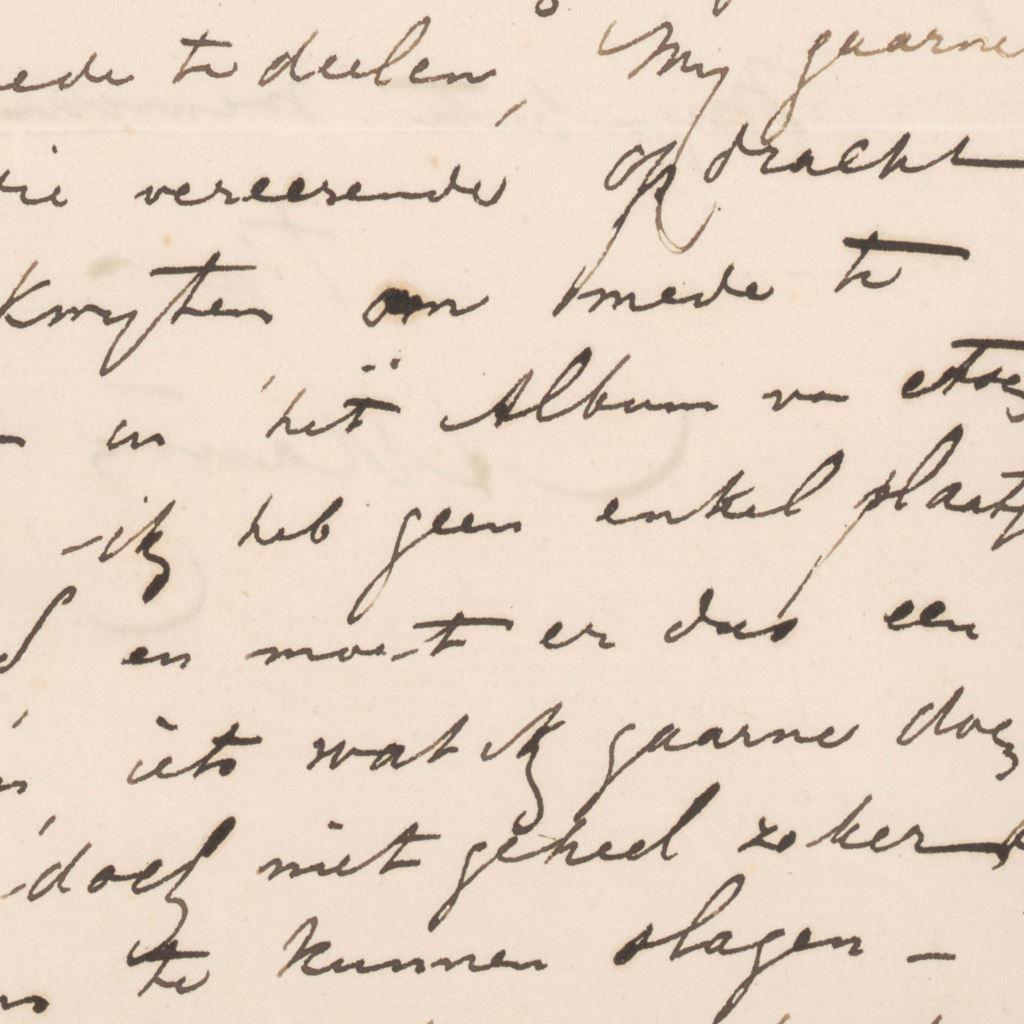 ede te deelen, My gaarne
die vereerende opdracht
kwyten om mede te
in het Album van etsen
- ik heb geen enkel plaatj
en moet er dus een
iets wat ik gaarne doe,
doch niet geheel zeker
te kunnen slagen -